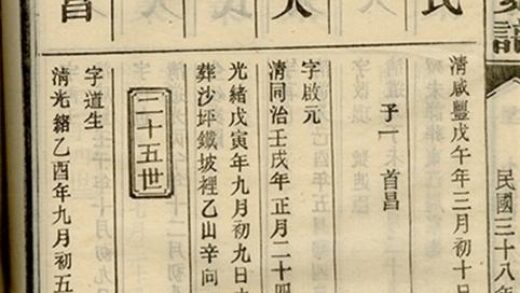 民國三十八年
氏
清咸豐戊午年三月初十日
子一 首昌
人
字啟元
清同治壬戌年正月二十四
光緒戊寅年九月初九日
葬沙坪鐵坡裡乙山辛向
二十五世
昌
字道生
清光緒乙酉年九月初五